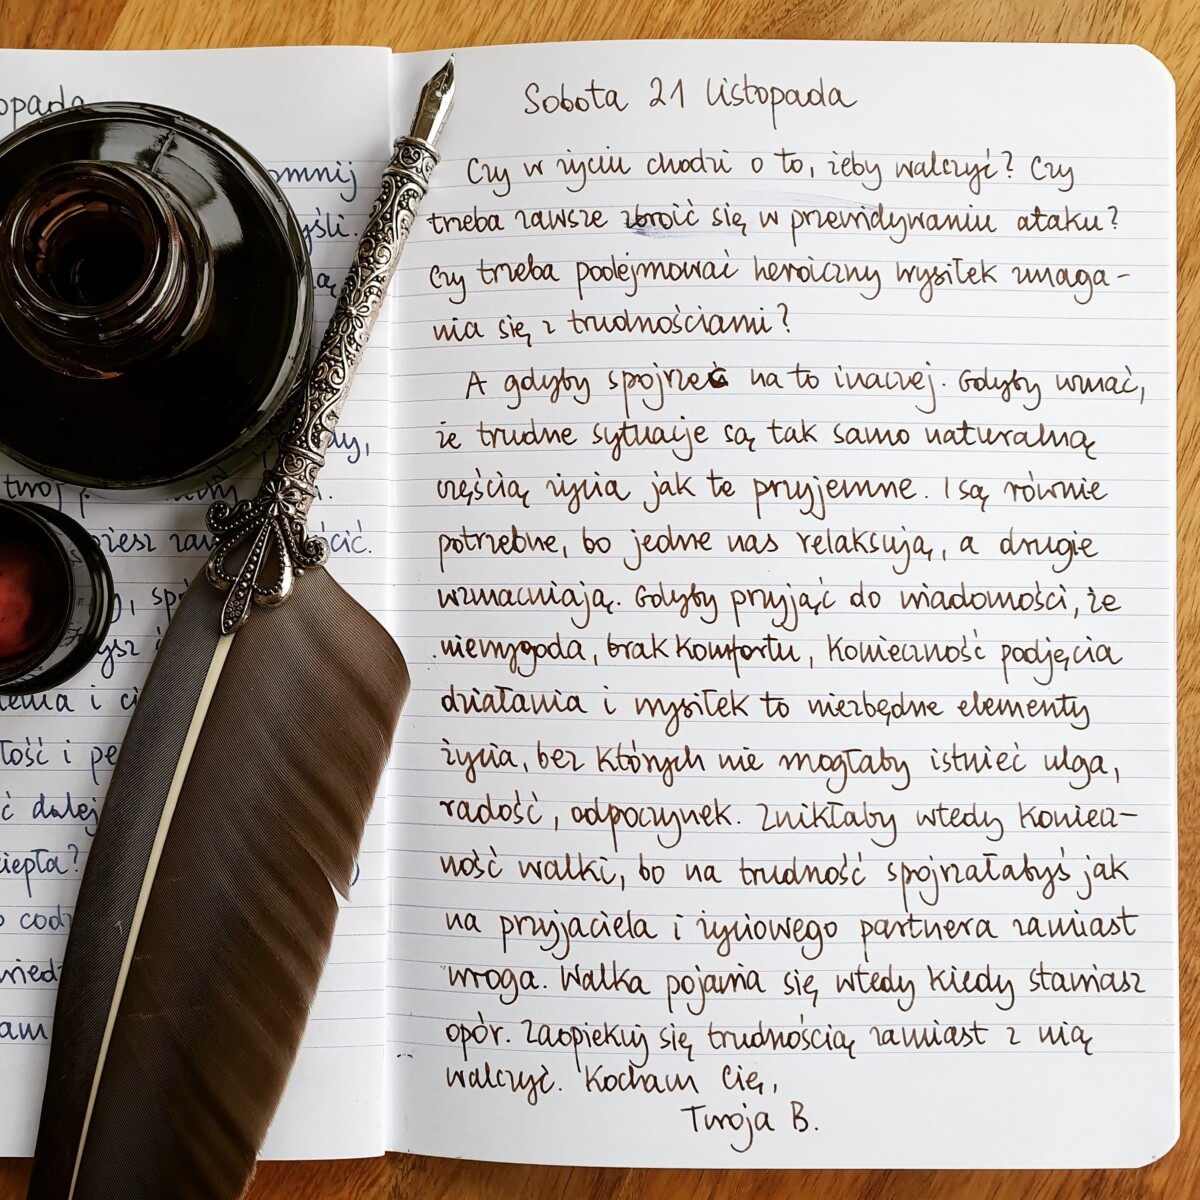 opada
omnij
yśli.
ną
dy,
twoj
ożesz
cić.
i
łość i
ć dalej
ciepła?
Sobota 21 listopada
Czy w życiu chodzi o to, żeby walczyć? Czy
trzeba zawsze zbroić się w przewidywaniu ataku?
Czy trzeba podejmować heroiczny wysiłek zmaga-
nia się z trudnościami?
A gdyby spojrzeć na to inaczej. Gdyby uznać,
że trudne sytuacje są tak samo naturalną
częścią życia jak te przyjemne. I są równie
potrzebne, bo jedne nas relaksują, a drugie
wzmacniają. Gdyby przyjąć do wiadomości, że
niewygoda, brak komfortu, konieczność podjęcia
działania i wysiłek to niezbędne elementy
życia, bez których nie mogłaby istnieć ulga,
radość, odpoczynek. Znikłaby wtedy koniecz-
ność walki, bo na trudność spojrzałabyś jak
na przyjaciela i życiowego partnera zamiast
wroga. Walka pojawia się wtedy kiedy stawiasz
opór. Zaopiekuj się trudnością zamiast z nią
walczyć. Kocham Cię,
Twoja B.